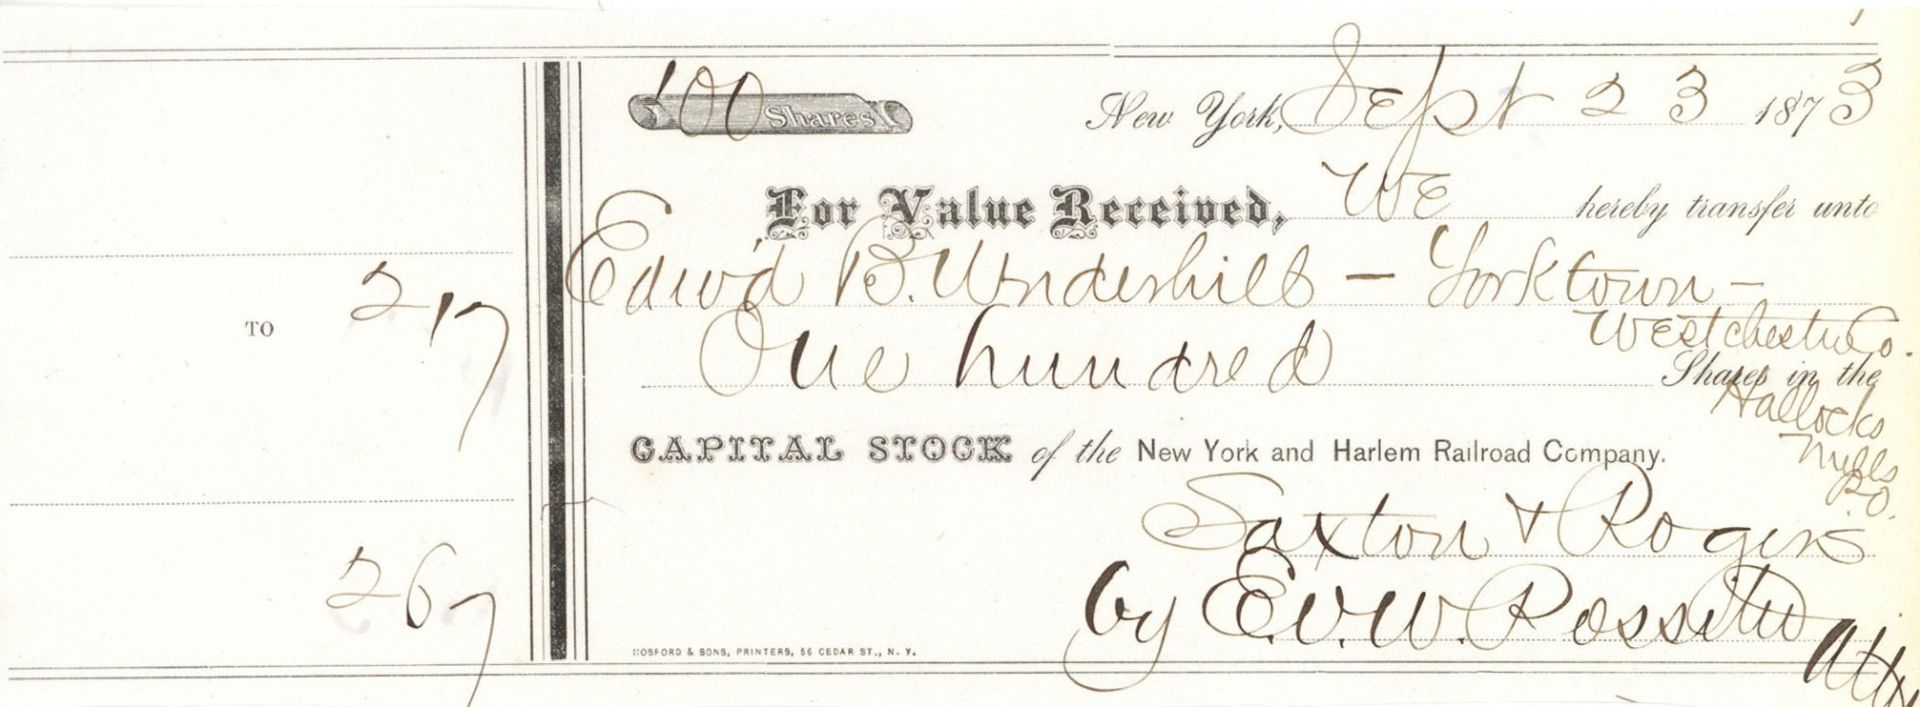 100 Shares
New York, Sept 23 1873
For Value Received, We hereby transfer unto
Edw'd B. Underhill - Yorktown -
Westchester Co.
One hundred Shares in the
Hallocks
Mills
P.O.
CAPITAL STOCK of the New York and Harlem Railroad Company.
Saxton & Rogers
by E.V.W. Rossiter
Atty
HOSFORD & SONS, PRINTERS, 56 CEDAR ST., N. Y.
217
TO
267